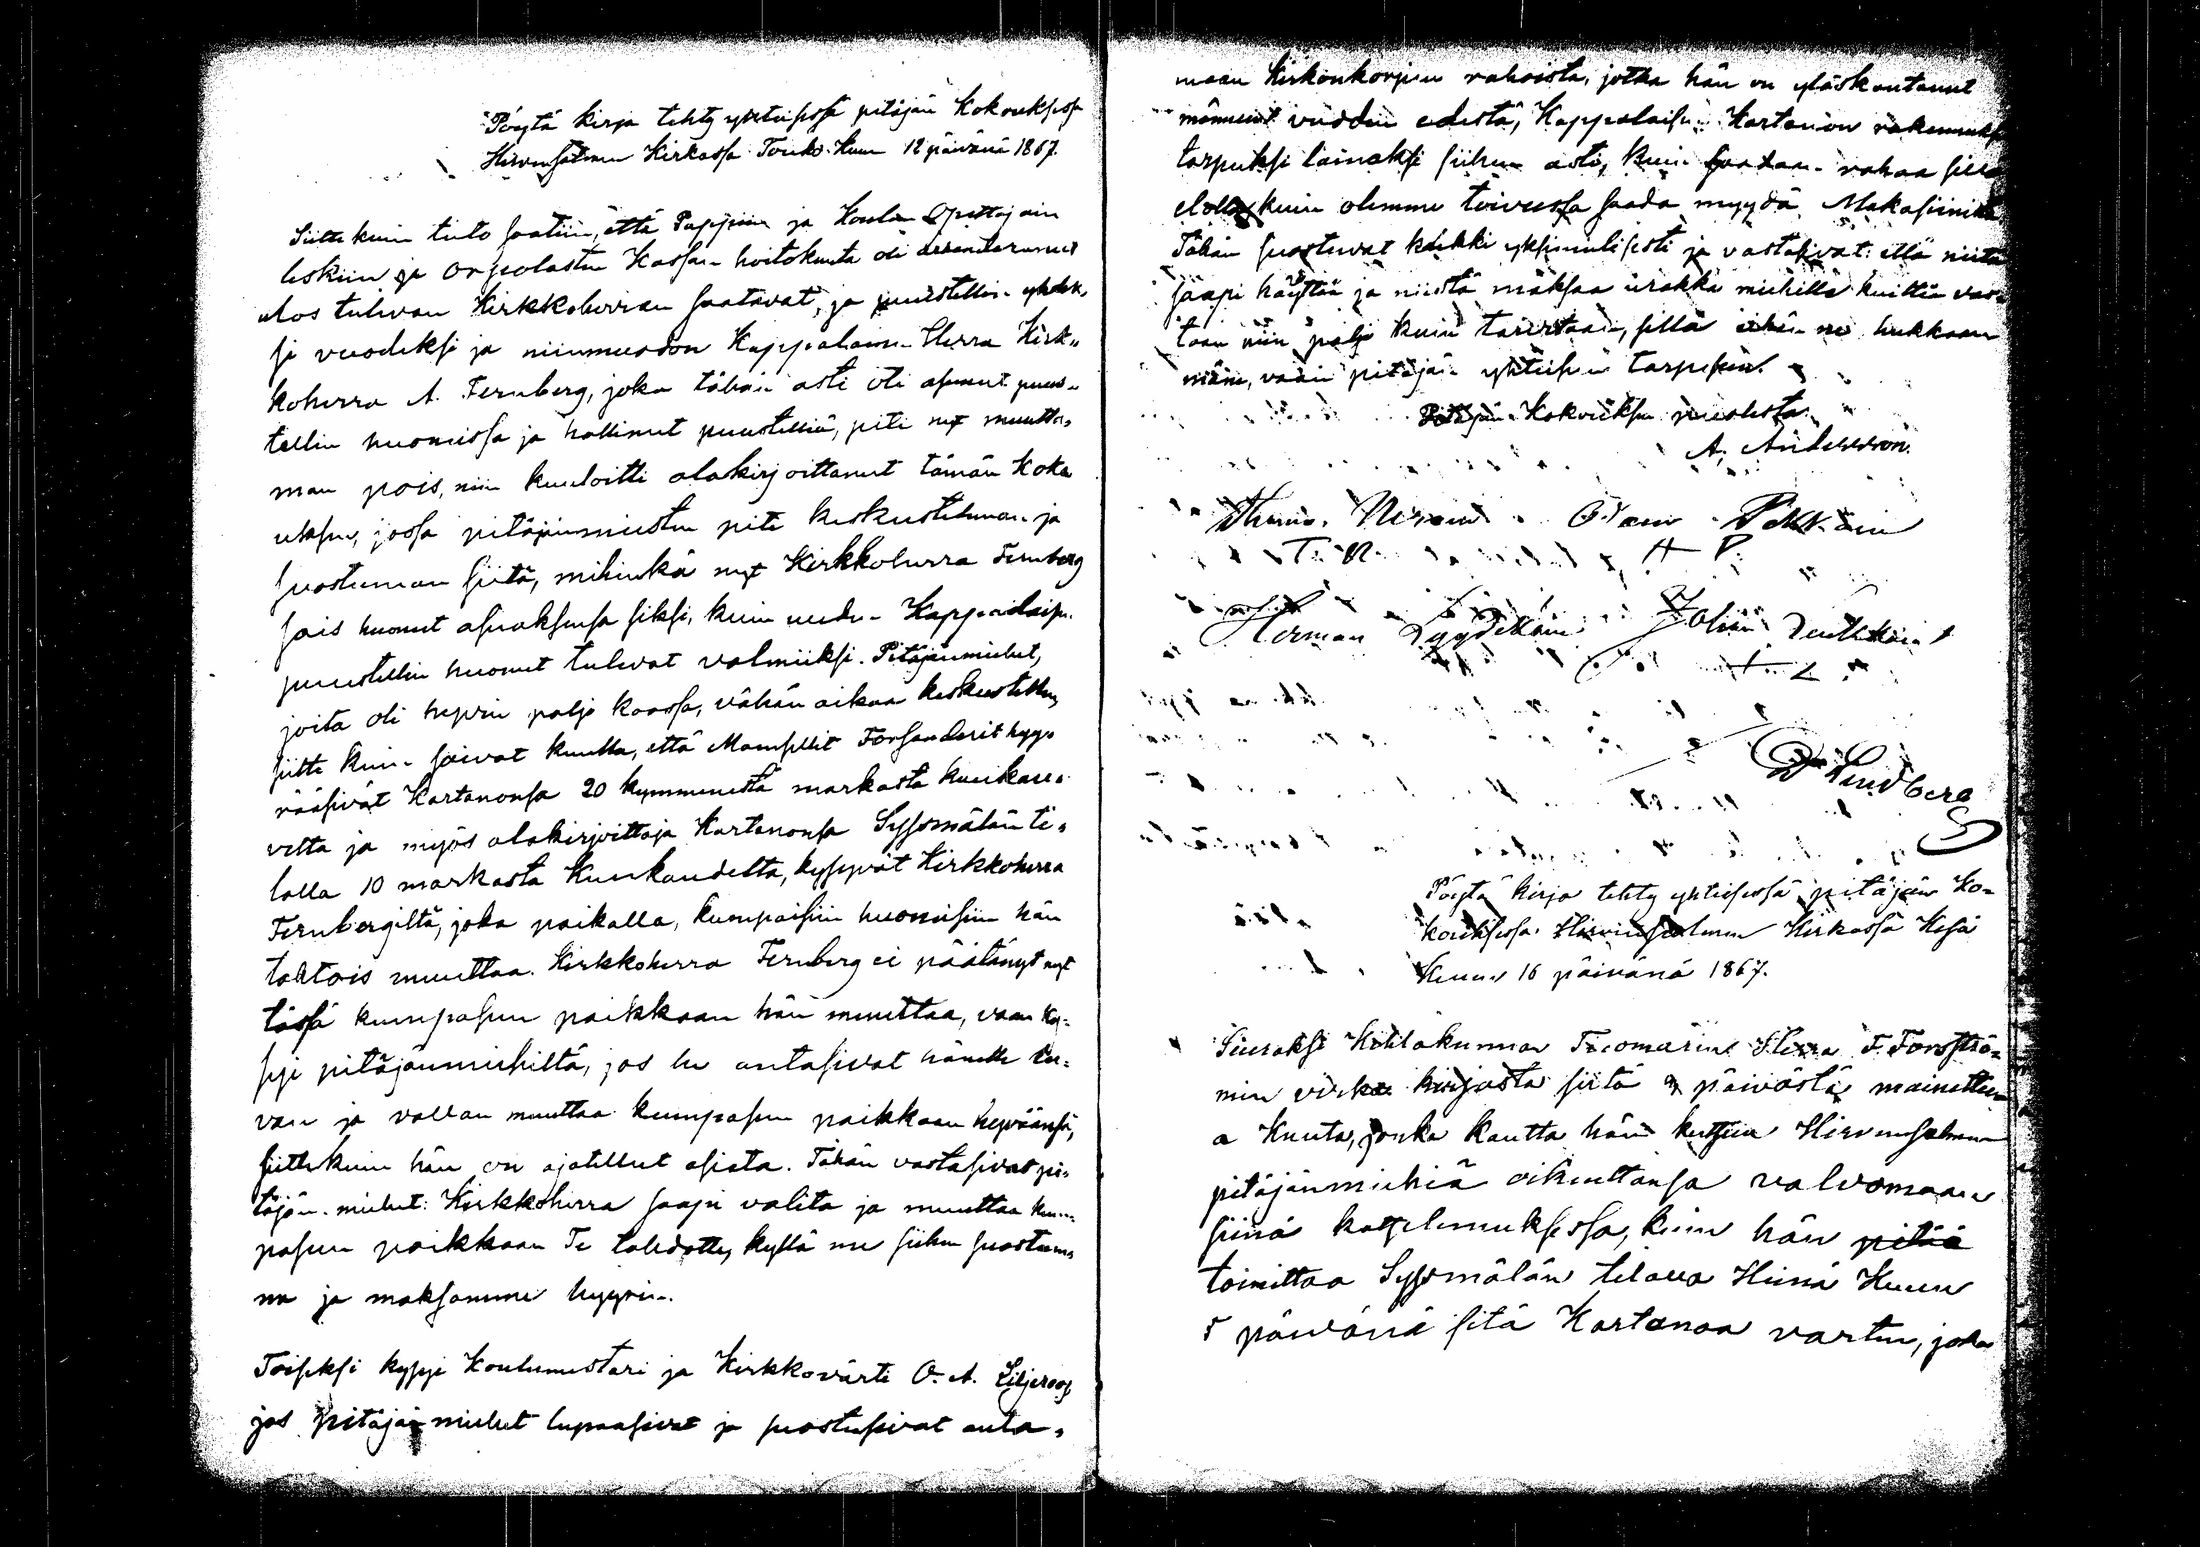 Pöytä kirja tehty yhteisessä pitäjän Kokouksessa
Hirvensalmen Kirkossa Touko Kuun 12 päivänä 1867.
Siitte kuin tieto saatiin, että Pappien ja Koulun Opettajain
leskein ja orpolasten Kassan hoitokunta oli
ulos tulevan Kirkkoherran saatavat, ja puustellin yhdek-
si vuodeksi ja niinmuodon Kappalainen Herra Kirk-
koherra A. Fernberg, joka tähän asti oli asunut puus-
tellin huoneissa ja hallinnut puustelliä, piti nyt muutta-
man pois, niin kuuloitti alakirjoittanut tämän koko-
uksen, jossa pitäjänmiesten piti keskusteleman ja
suostuman siitä, mihinkä nyt Kirkkoherra Fernberg
sais huonet asuaksensa siksi, kuin uuden Kappalaisen
puustellin huonet tulevat valmiiksi. Pitäjänmiehet,
joita oli hyvin paljo koossa, vähän aikaa keskusteltua,
siitte kuin saivat kuulla, että Mamsellit Forsanderit hyy-
rääsivät Kartanonsa 20 kymmenestä markasta kuukau-
velta ja myös alakirjoittaja Kartanonsa Syssmälän ti-
lalla 10 markasta Kuukaudelta, kysyivät Kirkkoherra
Fernbergiltä, joka paikalla, kumpaisiin huoneisiin hän
tahtois muuttaa. Kirkkoherra Fernberg ei päätänyt nyt
tässä kumpasen paikkaan hän muuttaa, vaan ky-
syi pitäjänmiehiltä, jos he antasivat hänelle lu-
van ja vallan muuttaa kumpasen paikkaan hyväänsä,
siittekuin hän on ajatellut asiata. Tähän vastasivat pi-
täjän miehet: Kirkkoherra saapi valita ja muuttaa kum-
pasen paikkaan Te tahdotte, kyllä me siihen suostum-
me ja maksamme hyyrin.
Toiseksi kysyi Koulumestari ja Kirkkovärti O. A. Liljeroos
jos pitäjän miehet lupaasivat ja suostusivat anta-
maan Kirkonkorjuu rahoista, jotka hän on ylöskantanut
männeint vuoden edestä, Kappalaisen Kartanon rakennuksen
tarpeiksi lainaksi siihen asti, kuin saadaan rahaa sillä
elolla, kuin olemme toiveessa saada myydä Makasiinista
Tähän suostuvat kaikki yksimielisesti ja vastasivat: että niitä
saapi käyttää ja niistä maksaa urakka miehille kuittia vas-
taan niin paljo kuin tarvitaan, sillä eihän ne hukkaan
mäne, vaan pitäjän yhteisiin tarpeisin.
Pitäjän Kokouksen puolesta
A. Andersson.
Pekkain
T. N. H P
Herman Lyydikäin Johan
+ L
Lindberg
Pöytä kirja tehty yhteisessä pitäjän Ko-
kouksessa Hirvensalmen Kirkossa Kesä
Kuun 16 päivänä 1867.
Siuraksi Kihlakunnan Tuomarin Herra F. Forsströ-
min virka kirjasta siitä 9 päivästä mainittua
a Kuuta, jonka kautta hän kutsuu Hirvensalmen
pitäjänmiehiä oikeuttansa valvomaan
siinä katselmuksessa, kuin hän pitää
toimittaa Syssmälän tilalla Heinä Kuun
5 päivänä sitä Kartanoa varten, joka